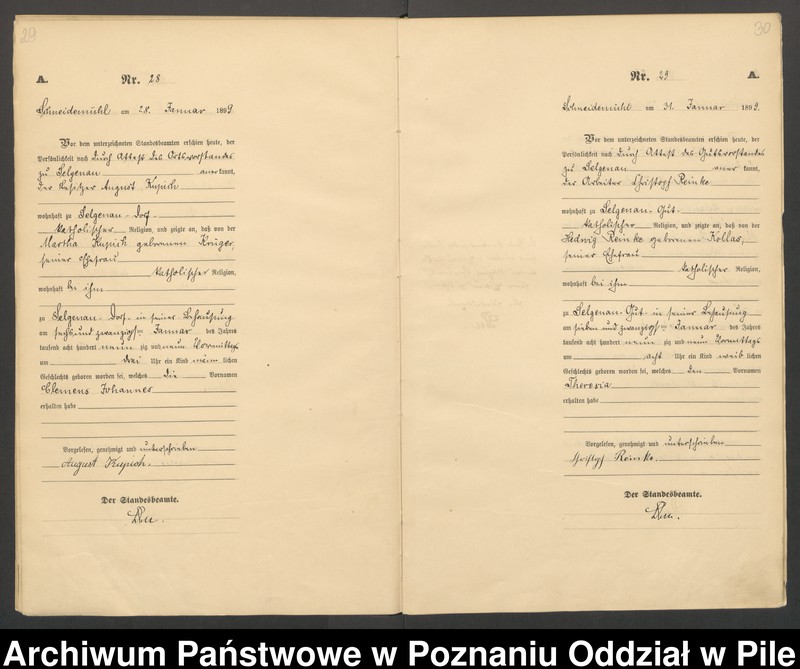 29
A.
Nr. 28
Schneidemühl am 28. Januar 1899.
Vor dem unterzeichneten Standesbeamten erschien heute, der
Persönlichkeit nach durch Attest des Ortsvorstandes
zu Selgenau aner kannt,
der Besitzer August Kupich
wohnhaft zu Selgenau-Dorf
katholischer Religion, und zeigte an, daß von der
Martha Kupich geborenen Krüger,
seiner Ehefrau
katholischer Religion,
wohnhaft bei ihm
zu Selgenau-Dorf in seiner Behausung
am sechsundzwanzigsten Januar des Jahres
tausend acht hundert neun zig und neun Vormittags
um drei Uhr ein Kind männ lichen
Geschlechts geboren worden sei, welches die Vornamen
Clemens Johannes
erhalten habe
Vorgelesen, genehmigt und unterschrieben
August Kupich.
Der Standesbeamte.
30
Nr. 29
A.
Schneidemühl am 31. Januar 1899.
Vor dem unterzeichneten Standesbeamten erschien heute, der
Persönlichkeit nach durch Attest des Gutsvorstandes
zu Selgenau aner kannt,
der Arbeiter Christoph Reinke
wohnhaft zu Selgenau-Gut
katholischer Religion, und zeigte an, daß von der
Hedwig Reinke geborenen Kollas,
seiner Ehefrau
katholischer Religion,
wohnhaft bei ihm
zu Selgenau-Gut in seiner Behausung
am siebenundzwanzigsten Januar des Jahres
tausend acht hundert neun zig und neun Vormittags
um acht Uhr ein Kind weib lichen
Geschlechts geboren worden sei, welches den Vornamen
Theresia
erhalten habe
Vorgelesen, genehmigt und unterschrieben
Christoph Reinke.
Der Standesbeamte.
Archiwum Państwowe w Poznaniu Oddział w Pile